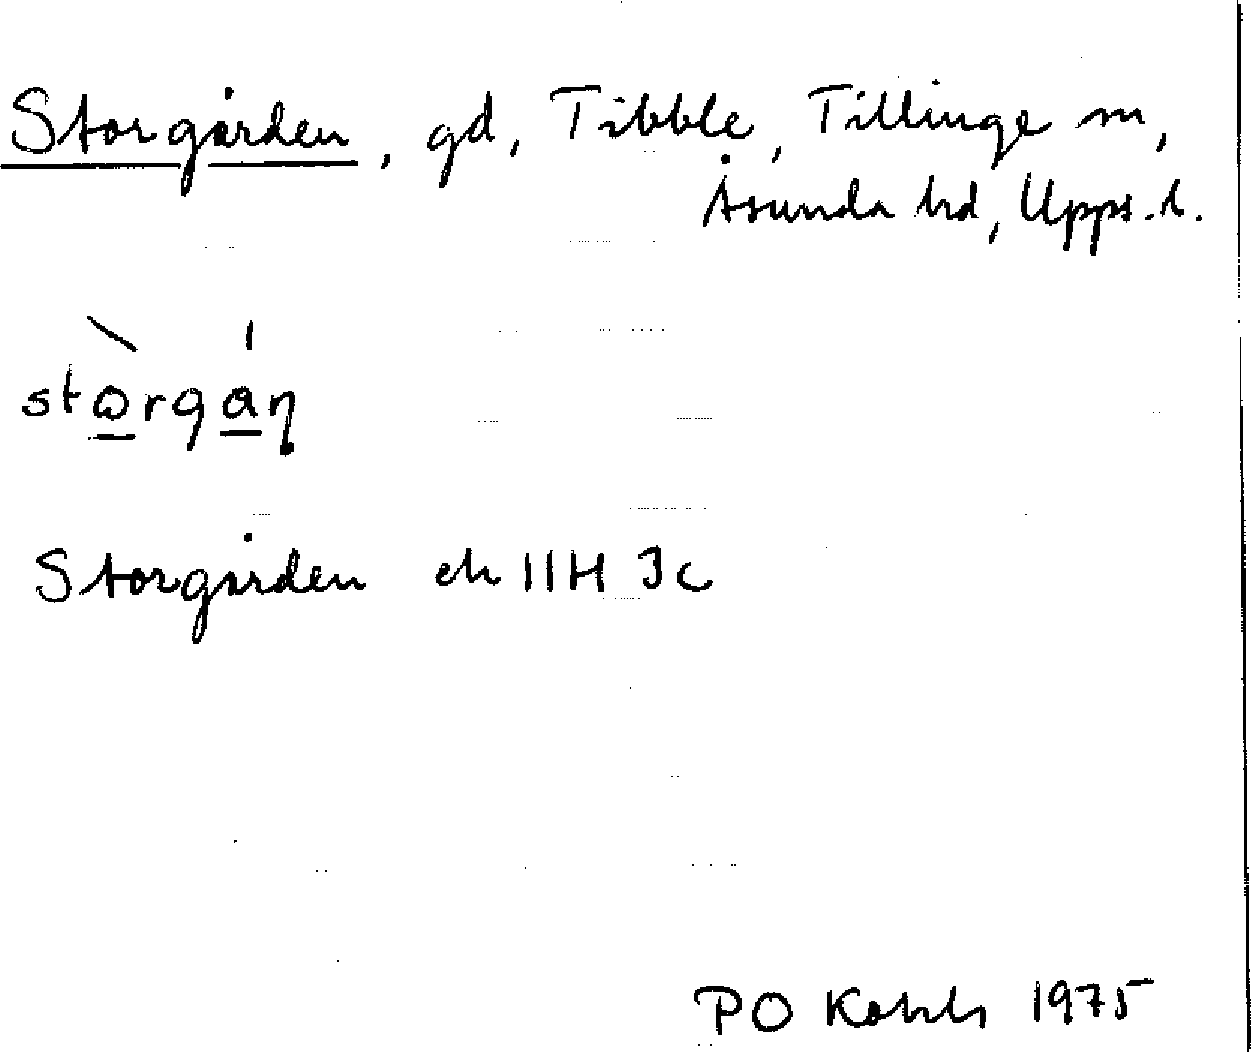 Storgården, gd, Tibble, Tillinge sn,
Åsunda hd, Upps. l.
Storgården ek 11H 3c
PO 1975